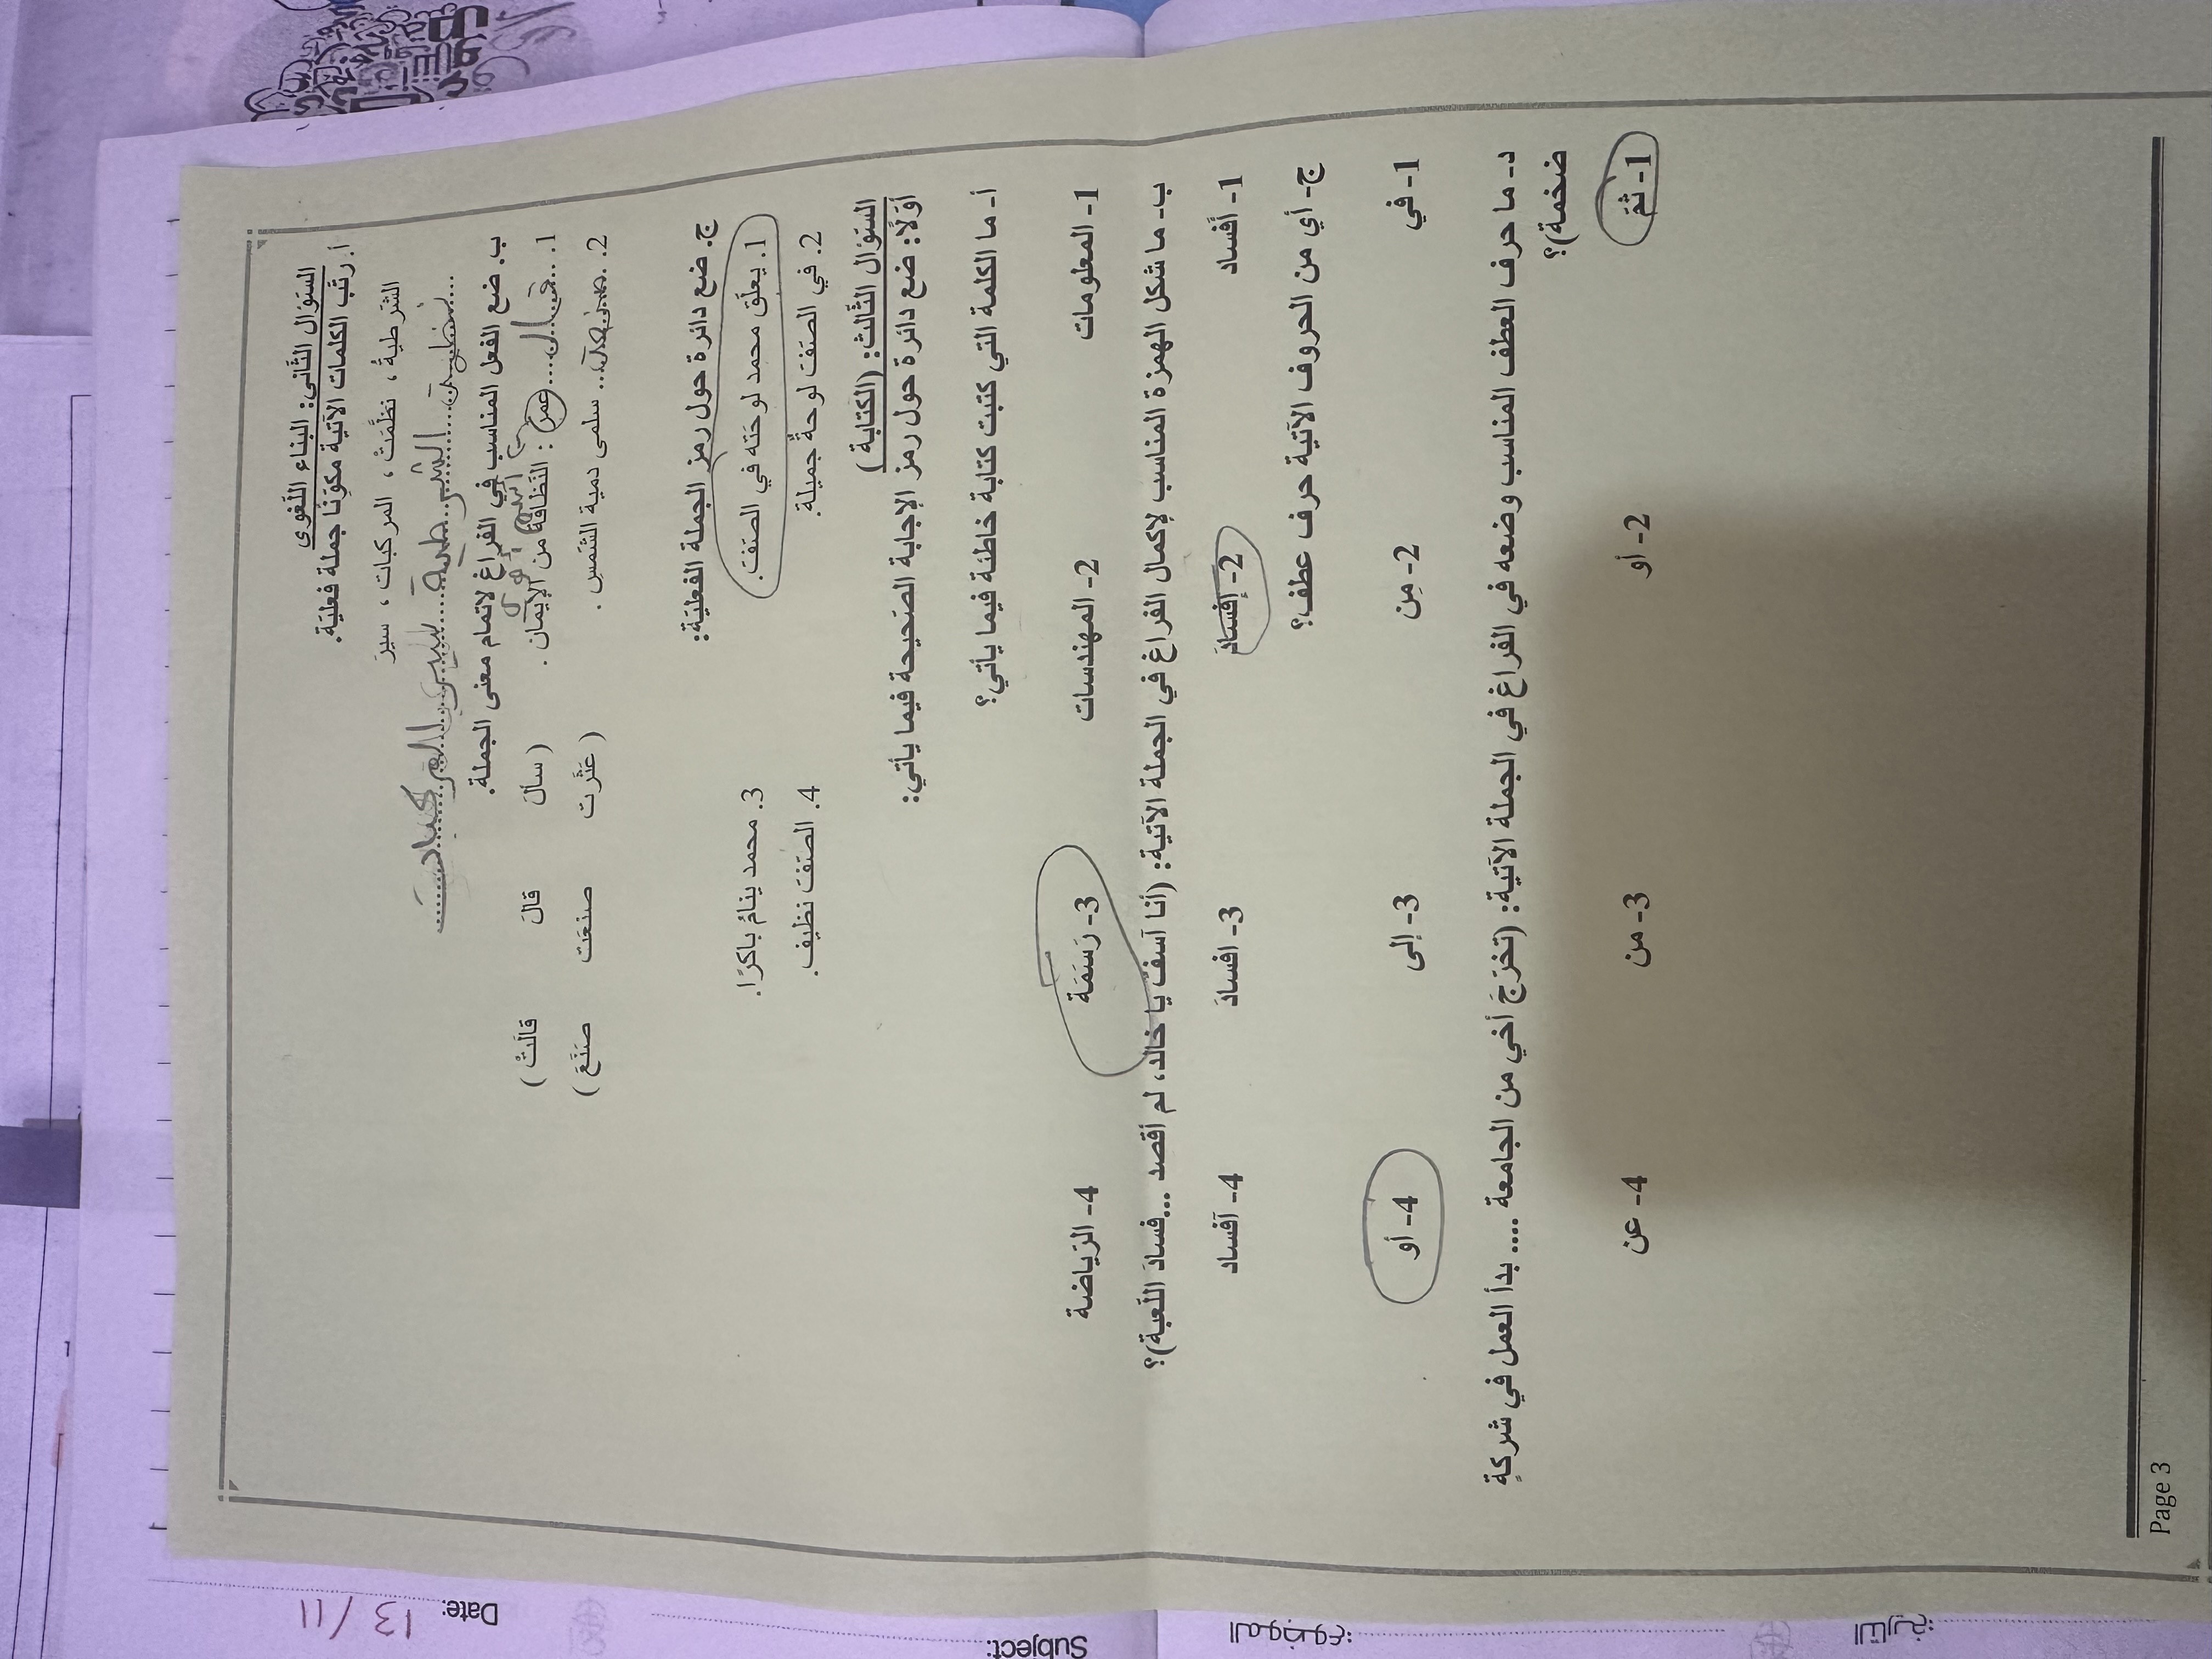 السّؤال الثّاني: البناء اللّغوي
أ. رتّب الكلمات الآتية مكوّنًا جملة فعليّة.
الشّرطيةُ ، نظَّمَتْ ، المركبات ، سيرَ
نظمت الشرطية سير المركبات
ب. ضع الفعل المناسب في الفراغ لاتمام معنى الجملة.
1. قال عمر : النّظافةُ من الإيمان . ( سألَ قالَ قالَتْ )
2. صنعت سلمى دمية الشّمس . ( عَثَرت صنعَت صَنَعَ )
ج. ضع دائرة حول رمز الجملة الفعليّة:
1. يعلّق محمد لوحَته في الصّفّ. 3. محمد ينامُ باكرًا.
2. في الصّفّ لوحةٌ جميلة. 4. الصّفّ نظيف.
السّؤال الثّالث: (الكتابة )
أوّلًا: ضع دائرة حول رمز الإجابة الصّحيحة فيما يأتي:
أ- ما الكلمة التي كتبت كتابة خاطئة فيما يأتي؟
1- المعلومات 2- المهندسات 3- رَسَمَة 4- الرّياضة
ب- ما شكل الهمزة المناسب لإكمال الفراغ في الجملة الآتية: (أنا آسفٌ يا خالد، لم أقصد ...فسادَ اللّعبة)؟
1- أفساد 2- إفسادَ 3- افسادَ 4- آفساد
ج- أي من الحروف الآتية حرف عطف؟
1- في 2- مِن 3- إلى 4- أو
د- ما حرف العطف المناسب وضعه في الفراغ في الجملة الآتية: (تخرّجَ أخي من الجامعة .... بدأ العمل في شركةٍ
ضخمة)؟
1- ثمّ 2- أو 3- من 4- عن
Page 3
Date: 13/11
Subject:
الموضوع:
التاريخ: